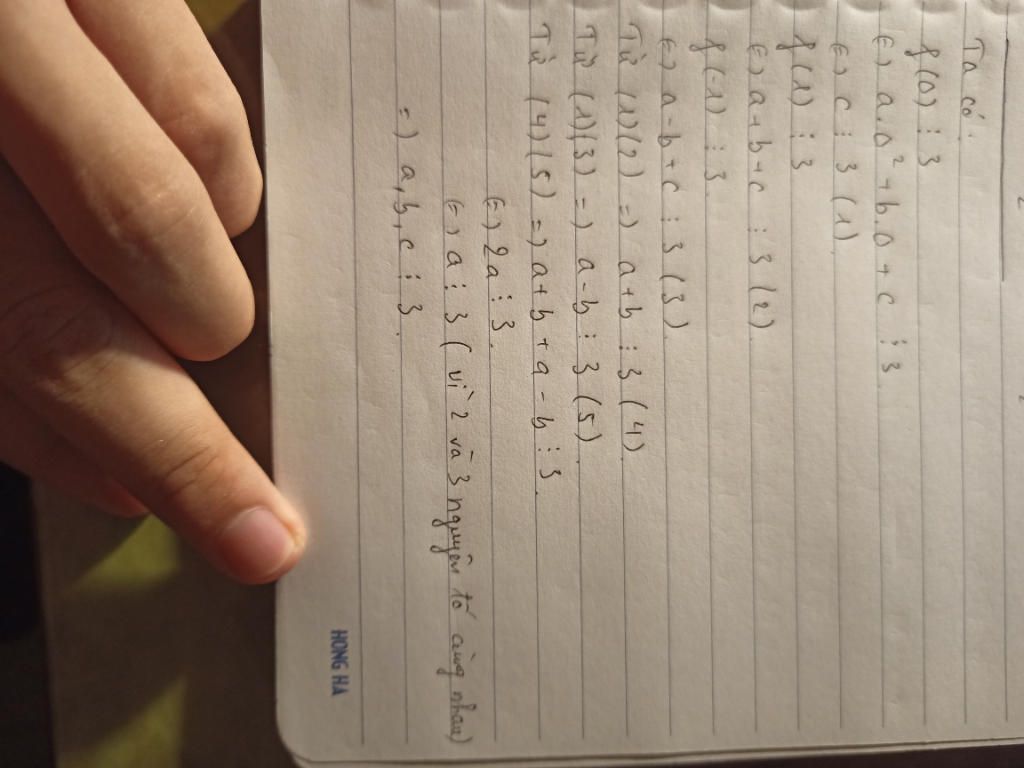 Ta có:
f(0) ⋮ 3
(=) a.0² + b.0 + c ⋮ 3
(=) c ⋮ 3 (1)
f(1) ⋮ 3
(=) a+b+c ⋮ 3 (2)
f(-1) ⋮ 3
(=) a-b+c ⋮ 3 (3)
Từ (1)(2) =) a+b ⋮ 3 (4)
Từ (1)(3) =) a-b ⋮ 3 (5)
Từ (4)(5) =) a+b+a-b ⋮ 3
(=) 2a ⋮ 3
(=) a ⋮ 3 (vì 2 và 3 nguyên tố cùng nhau)
=) a,b,c ⋮ 3.
HONG HA